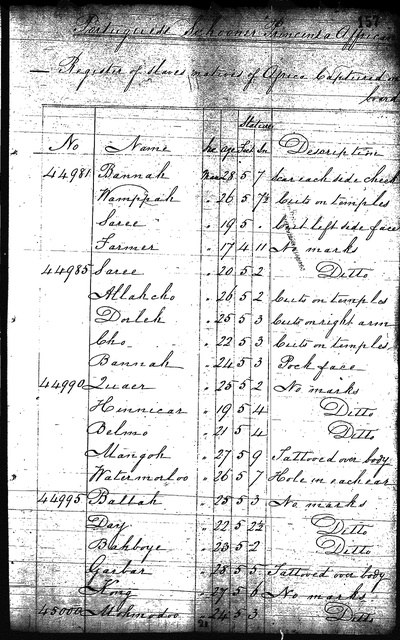 157
Portuguese Schooner
Register of Slaves natives of Africa Captured on
board
Stature
No Name Sex Age Feet In Description
44981 Bannah Man 28 5 7 Scar each side cheek
Wamppah " 26 5 7½ Cuts on temples
Saree " 19 5 . Cut left side face
Farmer " 17 4 11 No marks
44985 Saree " 20 5 2 Ditto
Allahcho " 26 5 2 Cuts on temples
Dorleh " 25 5 3 Cuts on right arm
Cho " 22 5 3 Cuts on temples
Bannah " 24 5 3 Pock face
44990 Quaer " 25 5 2 No marks
Hinnicar " 19 5 4 Ditto
Belmo " 21 5 4 Ditto
Mangoh " 27 5 9 Tattooed over body
Watermorloo " 26 5 7 Hole in each ear
44995 Battah " 25 5 3 No marks
Day " 22 5 2½ Ditto
Bahboye " 23 5 2 Ditto
Garbar " 25 5 5 Tattooed over body
Kong " 27 5 6 No marks
45000 Mohmodoo " 24 5 3 Ditto